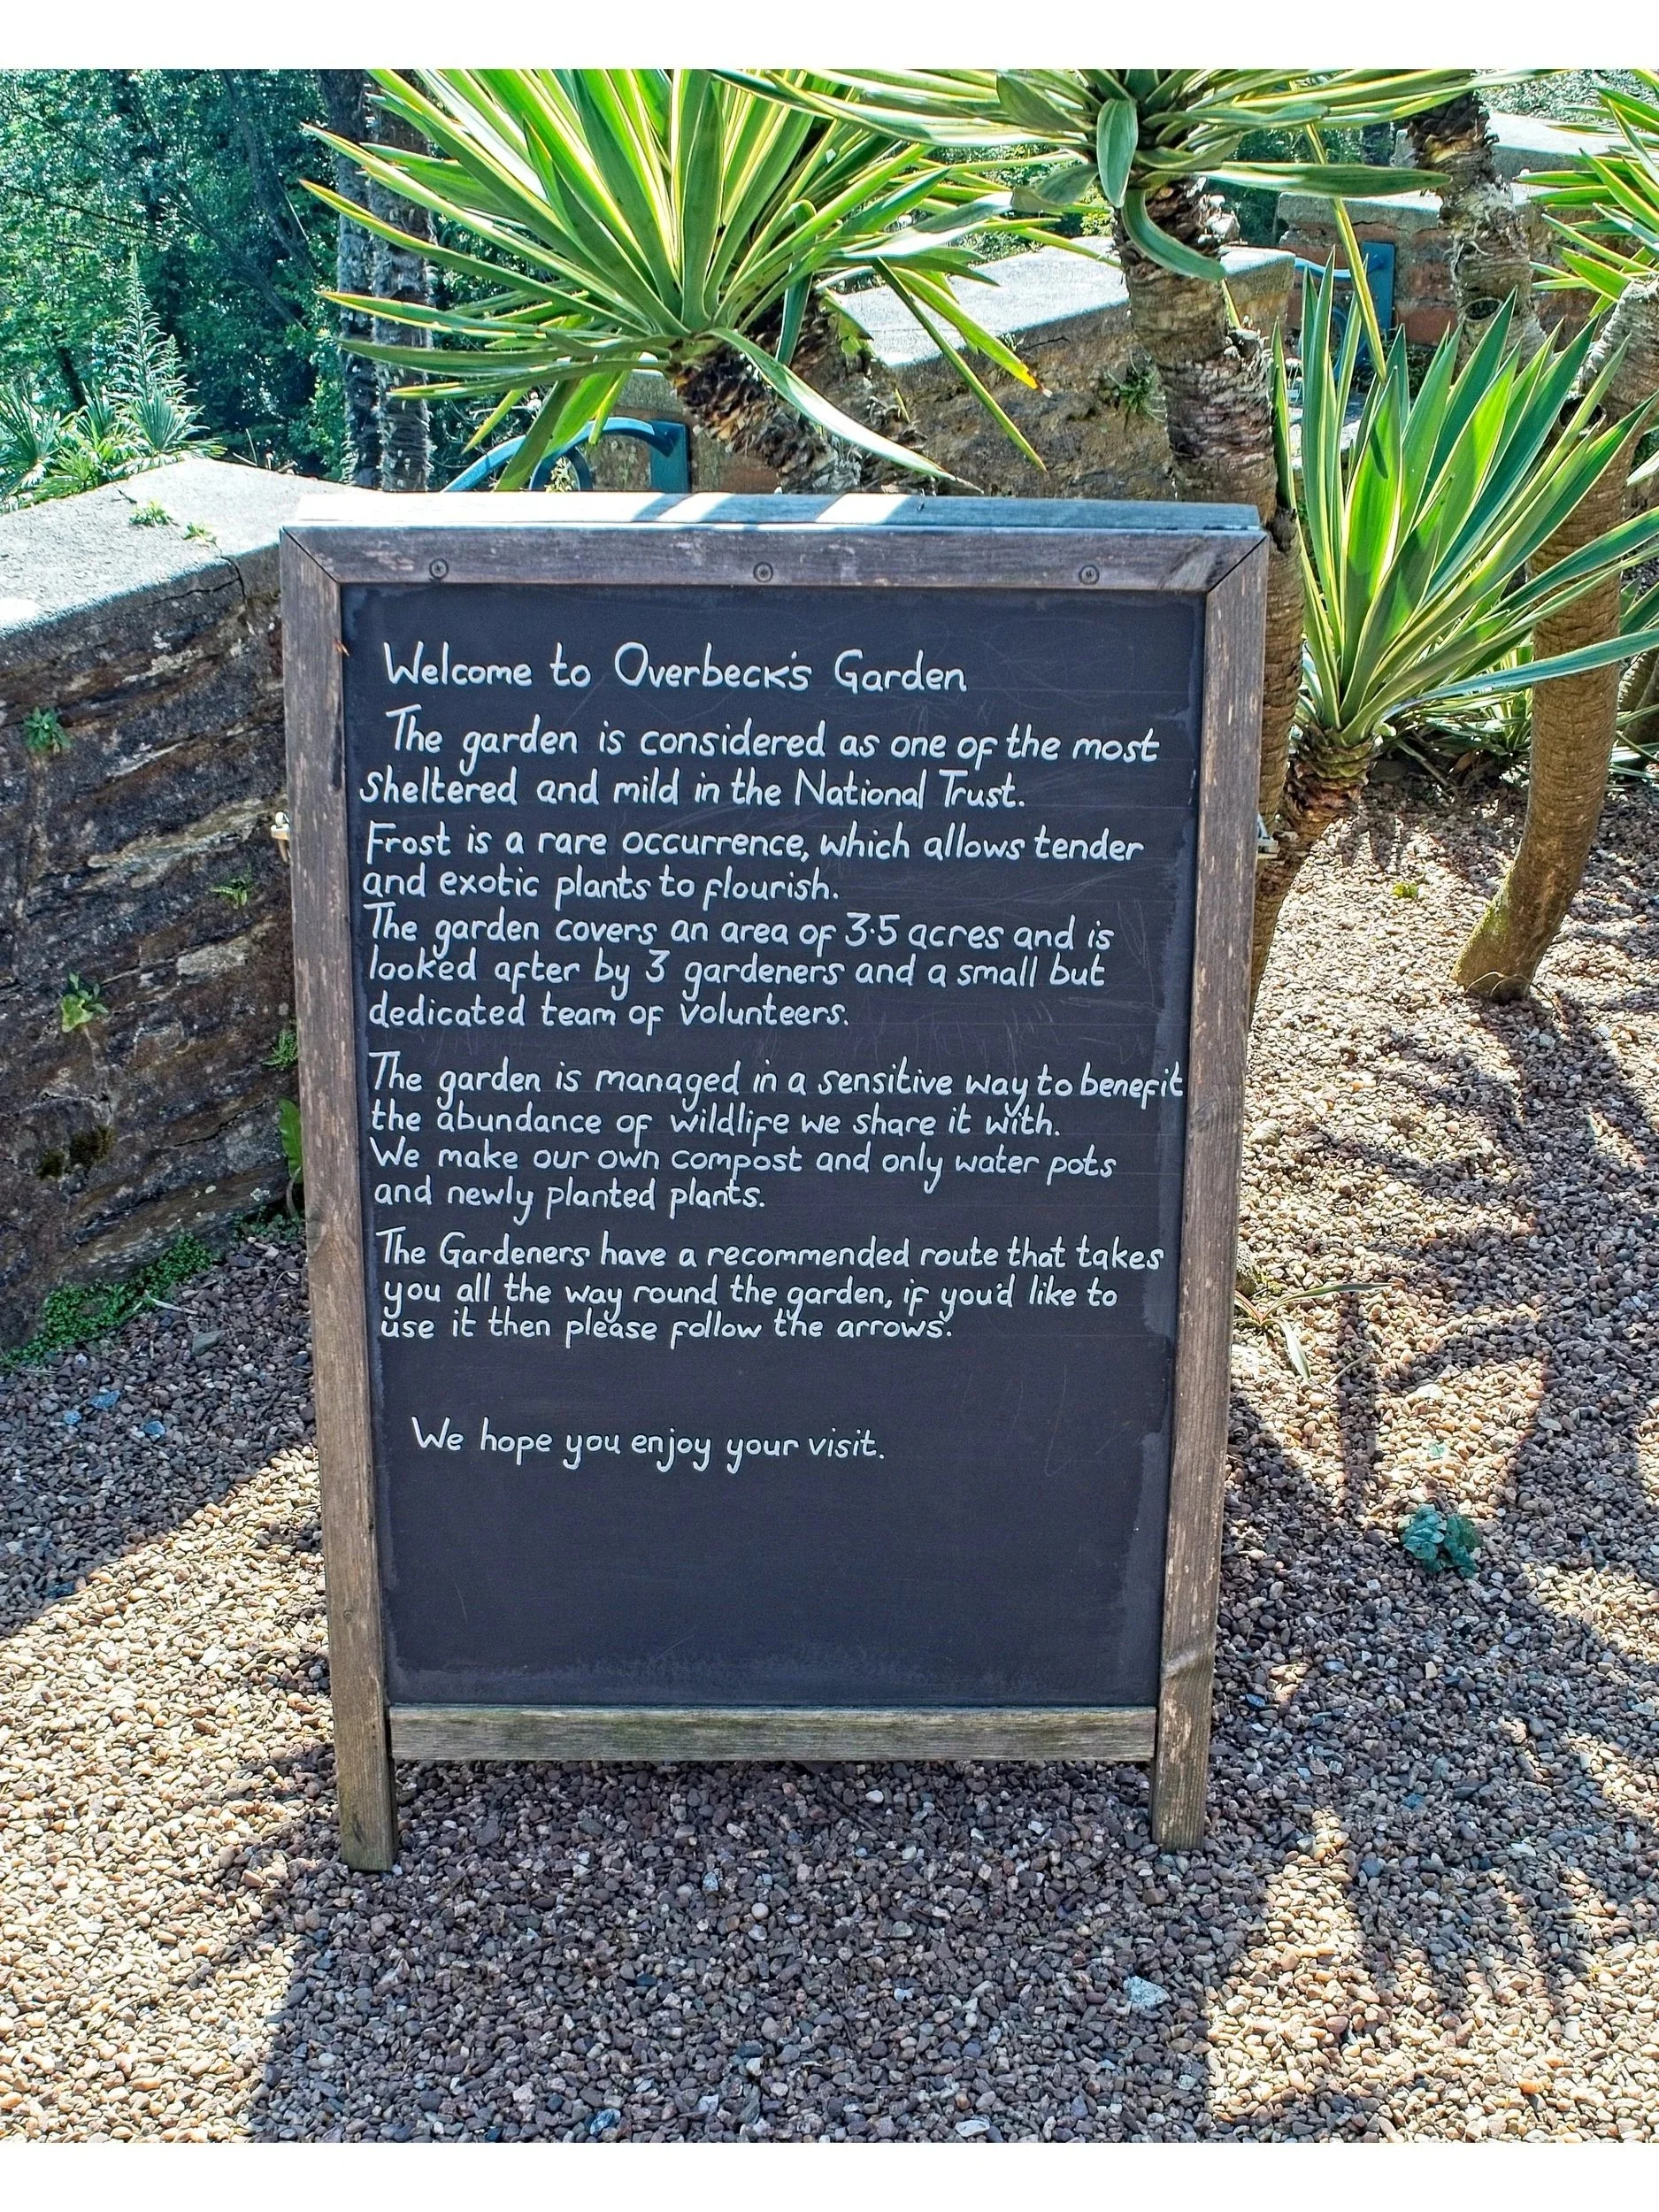 Welcome to Overbeck's Garden
The garden is considered as one of the most
sheltered and mild in the National Trust.
Frost is a rare occurrence, which allows tender
and exotic plants to flourish.
The garden covers an area of 3·5 acres and is
looked after by 3 gardeners and a small but
dedicated team of volunteers.
The garden is managed in a sensitive way to benefit
the abundance of wildlife we share it with.
We make our own compost and only water pots
and newly planted plants.
The Gardeners have a recommended route that takes
you all the way round the garden, if you'd like to
use it then please follow the arrows.
We hope you enjoy your visit.